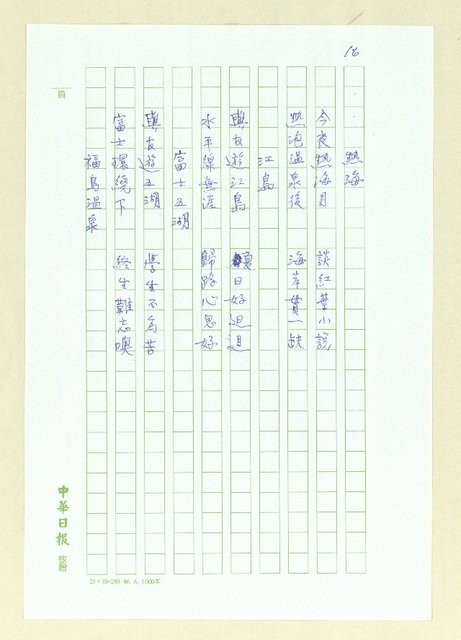 16
熱海
今夜熱海月 談紅葉小說
熱泡溫泉後 海岸賞一訣
江島
與友遊江島 夏日好迴迴
水平線無涯 歸路心思好
富士五湖
與友遊五湖 學生不為苦
富士環繞下 終生難忘噢
福島溫泉
頁
中華日報
25×10=250 86. 6. 1000本